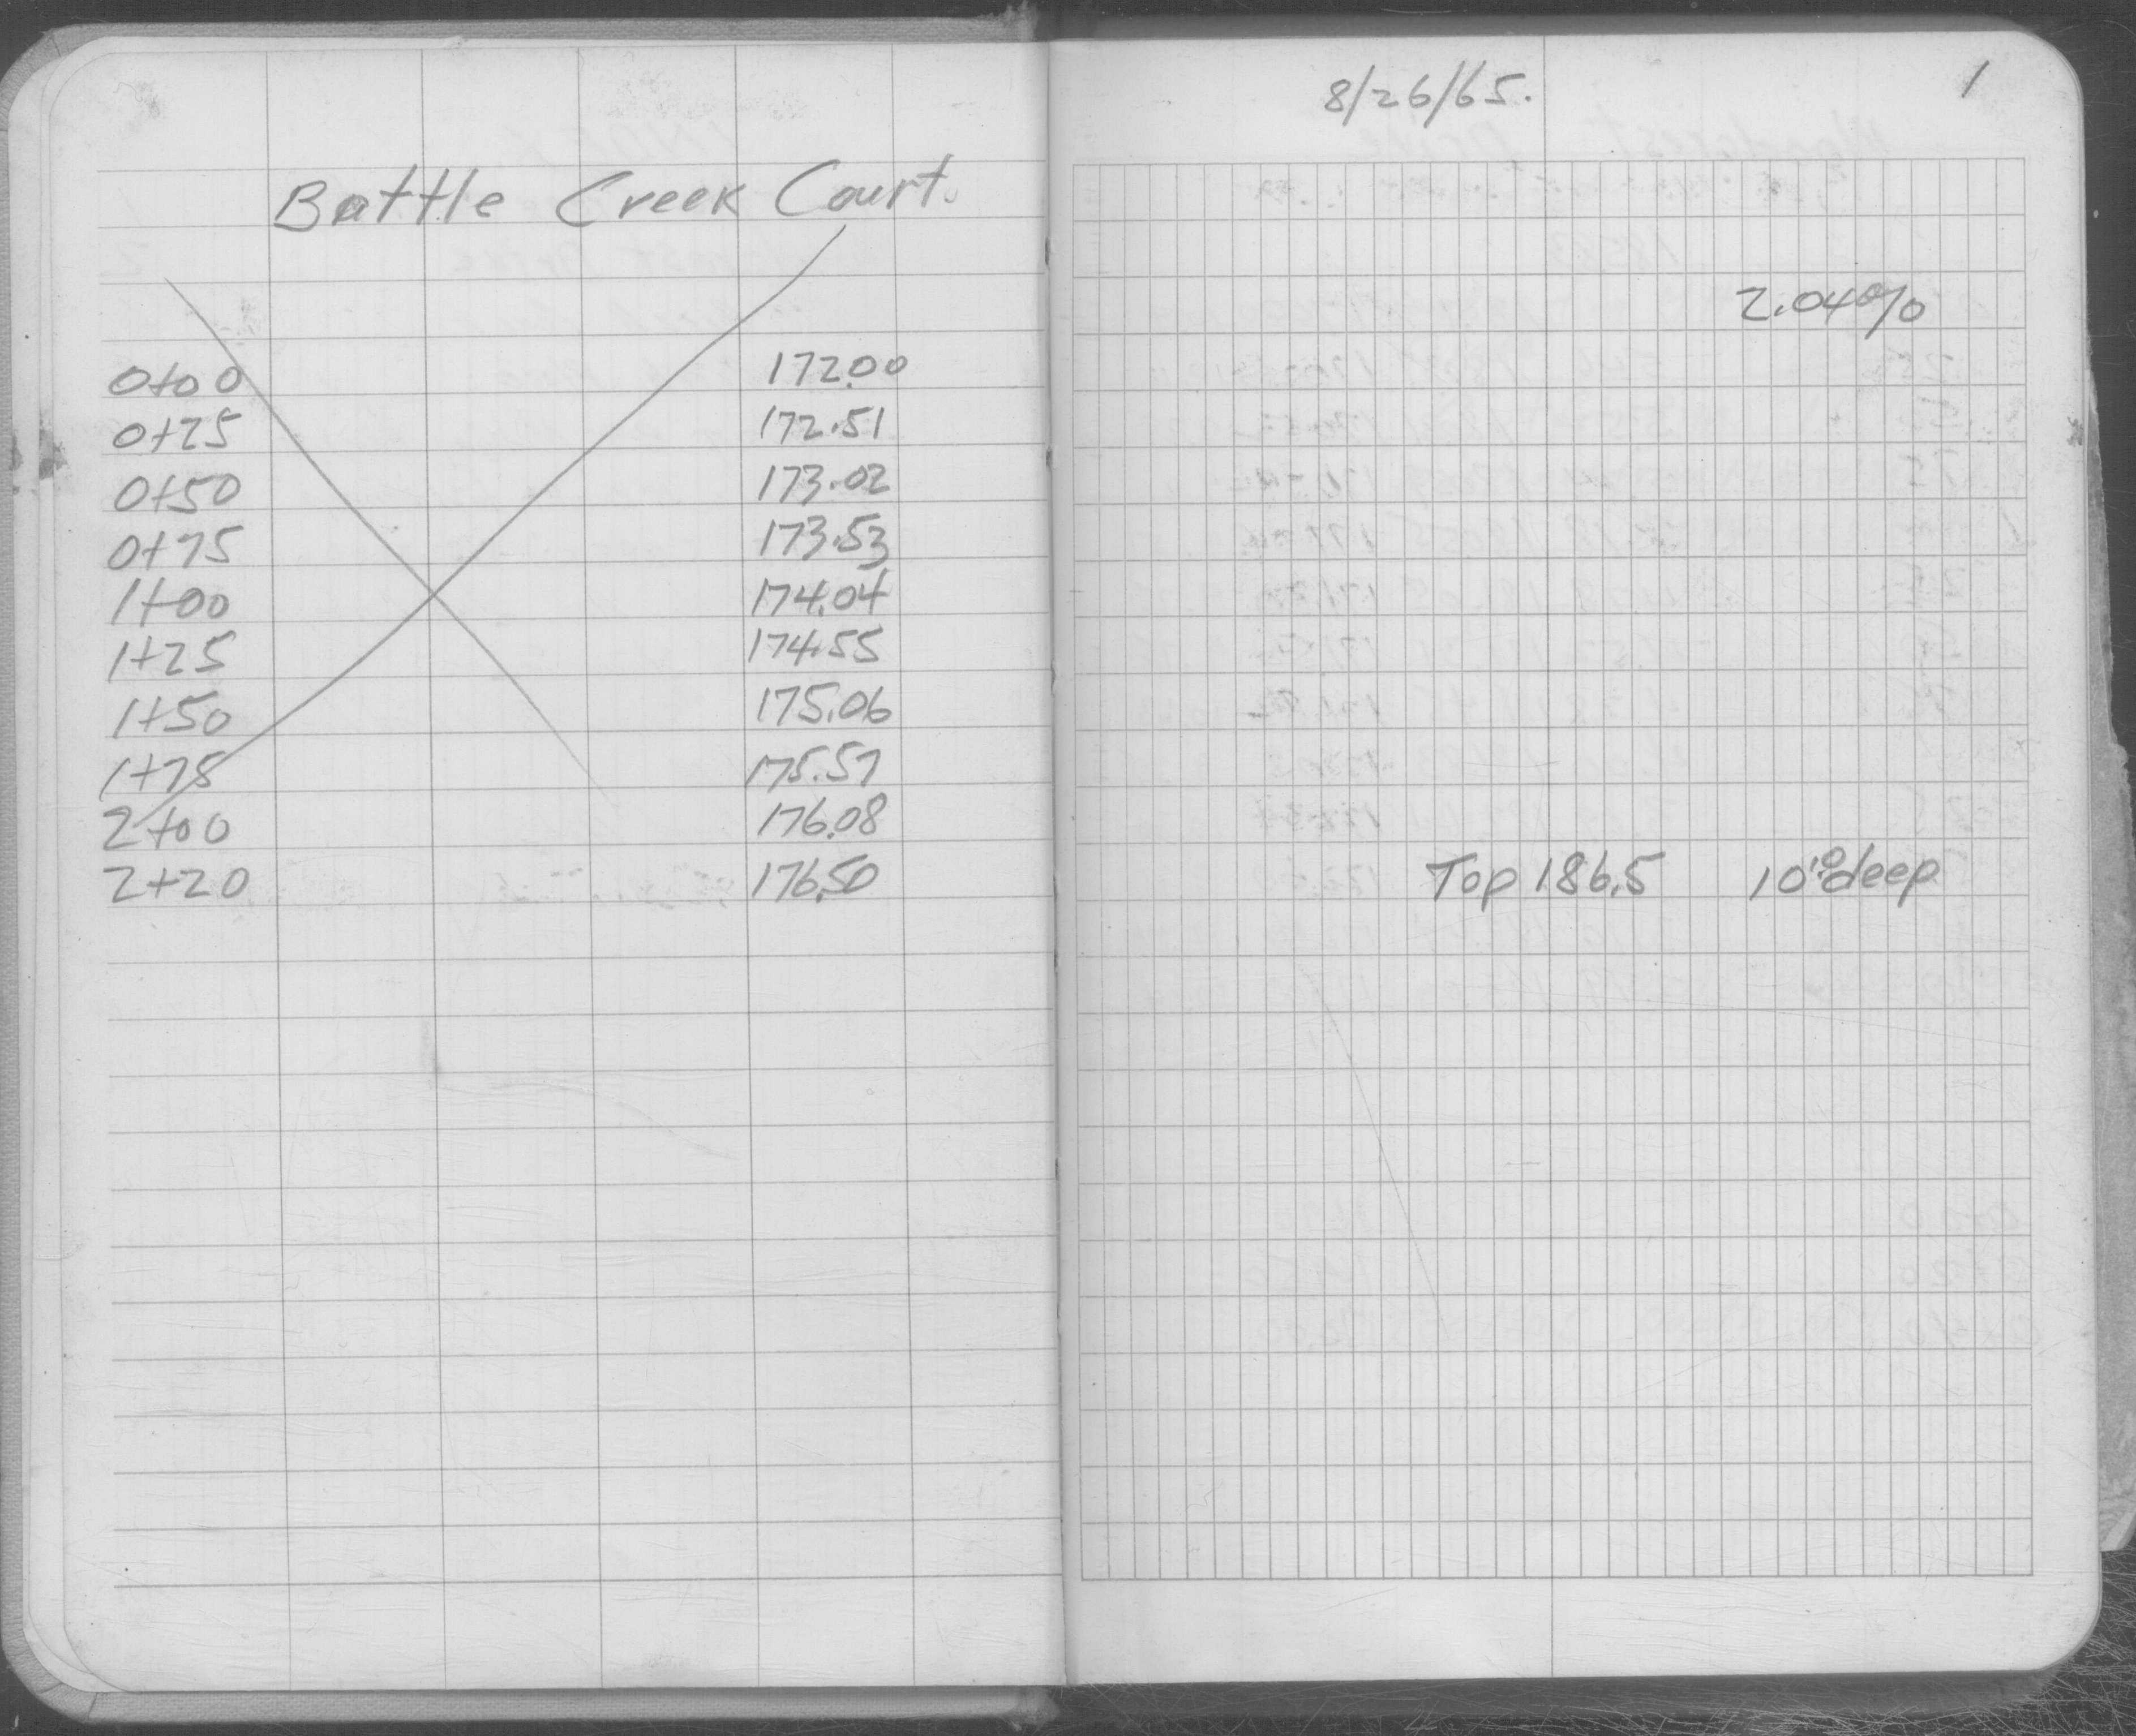 8/26/65. 1
Battle Creek Court.
2.04%
0+00 172.00
0+25 172.51
0+50 173.02
0+75 173.53
1+00 174.04
1+25 174.55
1+50 175.06
1+75 175.57
2+00 176.08
2+20 176.50 Top 186.5 10'0 deep